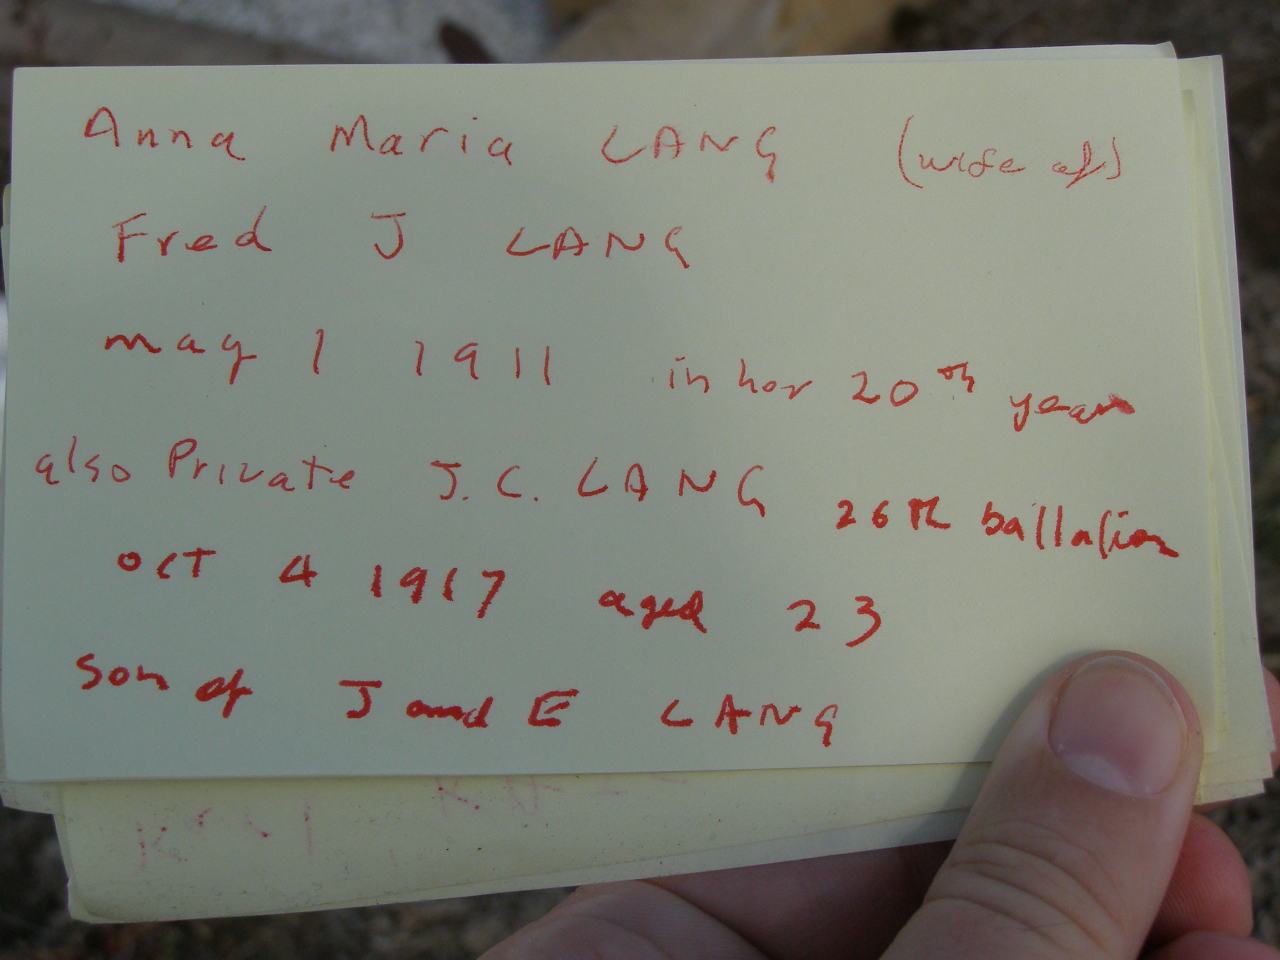 Anna Maria LANG (wife of)
Fred J LANG
may 1 1911 in her 20th year
also Private J.C. LANG 26th ballation
oct 4 1917 aged 23
son of J and E LANG